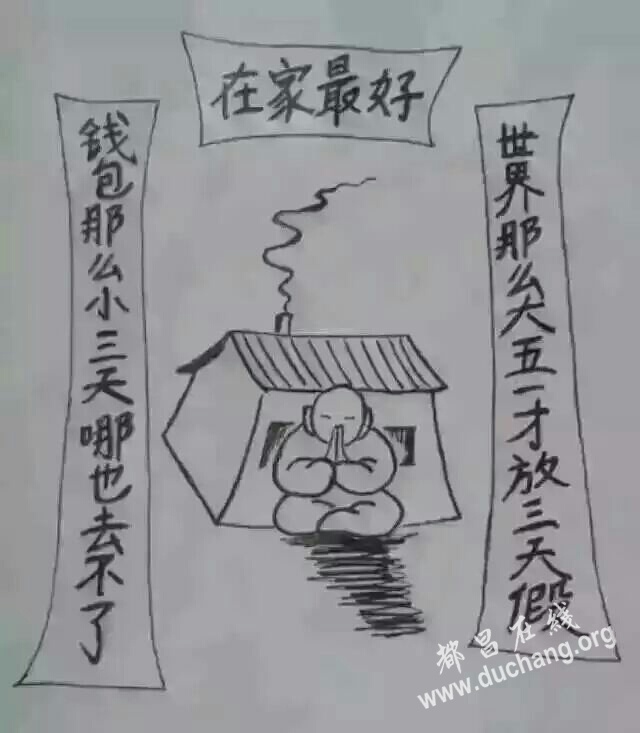 在家最好
世界那么大五一才放三天假
钱包那么小三天哪也去不了
都昌在线
www.duchang.org